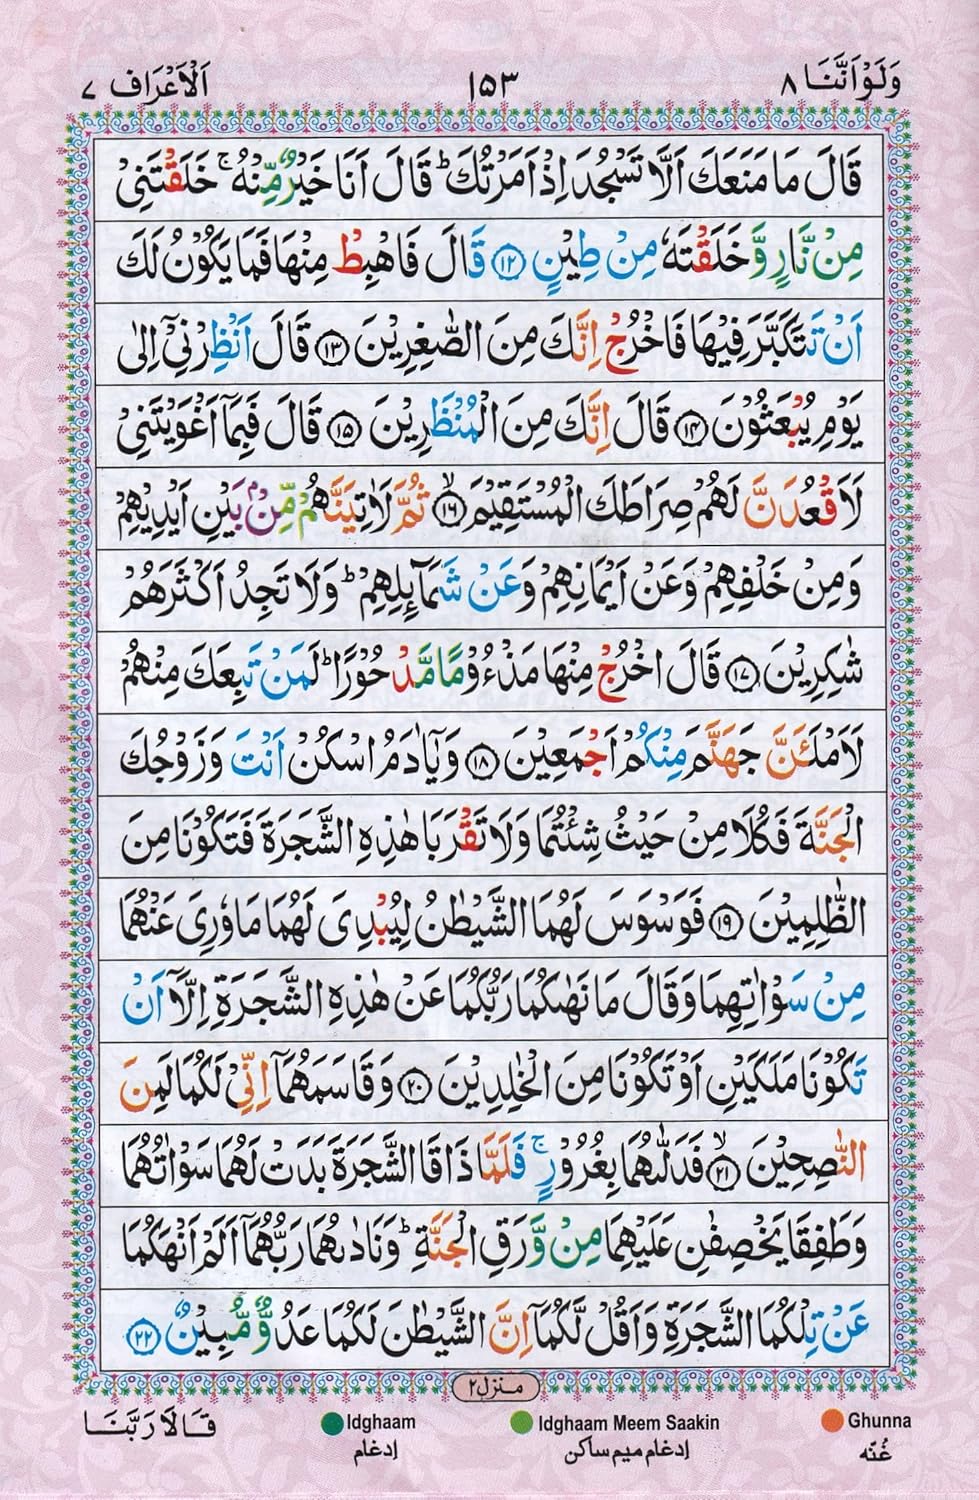 وَلَوْ اَنَّنَا ٨
١٥٣
اَلْاَعْرَاف ٧
قَالَ مَا مَنَعَكَ اَلَّا تَسْجُدَ اِذْ اَمَرْتُكَ ؕ قَالَ اَنَا خَيْرٌ مِّنْهُ ۚ خَلَقْتَنِىْ
مِنْ نَّارٍ وَّ خَلَقْتَهٗ مِنْ طِيْنٍ ١٢ قَالَ فَاهْبِطْ مِنْهَا فَمَا يَكُوْنُ لَكَ
اَنْ تَتَكَبَّرَ فِيْهَا فَاخْرُجْ اِنَّكَ مِنَ الصّٰغِرِيْنَ ١٣ قَالَ اَنْظِرْنِىْۤ اِلٰى
يَوْمِ يُبْعَثُوْنَ ١٤ قَالَ اِنَّكَ مِنَ الْمُنْظَرِيْنَ ١٥ قَالَ فَبِمَاۤ اَغْوَيْتَنِىْ
لَاَقْعُدَنَّ لَهُمْ صِرَاطَكَ الْمُسْتَقِيْمَ ۙ١٦ ثُمَّ لَاٰتِيَنَّهُمْ مِّنْۢ بَيْنِ اَيْدِيْهِمْ
وَمِنْ خَلْفِهِمْ وَعَنْ اَيْمَانِهِمْ وَعَنْ شَمَآئِلِهِمْ ؕ وَلَا تَجِدُ اَكْثَرَهُمْ
شٰكِرِيْنَ ١٧ قَالَ اخْرُجْ مِنْهَا مَذْءُوْمًا مَّدْحُوْرًا ؕ لَمَنْ تَبِعَكَ مِنْهُمْ
لَاَمْلَئَنَّ جَهَنَّمَ مِنْكُمْ اَجْمَعِيْنَ ١٨ وَيٰۤاٰدَمُ اسْكُنْ اَنْتَ وَزَوْجُكَ
الْجَنَّةَ فَكُلَا مِنْ حَيْثُ شِئْتُمَا وَلَا تَقْرَبَا هٰذِهِ الشَّجَرَةَ فَتَكُوْنَا مِنَ
الظّٰلِمِيْنَ ١٩ فَوَسْوَسَ لَهُمَا الشَّيْطٰنُ لِيُبْدِىَ لَهُمَا مَا وٗرِىَ عَنْهُمَا
مِنْ سَوْاٰتِهِمَا وَقَالَ مَا نَهٰىكُمَا رَبُّكُمَا عَنْ هٰذِهِ الشَّجَرَةِ اِلَّاۤ اَنْ
تَكُوْنَا مَلَكَيْنِ اَوْ تَكُوْنَا مِنَ الْخٰلِدِيْنَ ٢٠ وَقَاسَمَهُمَاۤ اِنِّىْ لَكُمَا لَمِنَ
النّٰصِحِيْنَ ۙ٢١ فَدَلّٰىهُمَا بِغُرُوْرٍ ۚ فَلَمَّا ذَاقَا الشَّجَرَةَ بَدَتْ لَهُمَا سَوْاٰتُهُمَا
وَطَفِقَا يَخْصِفٰنِ عَلَيْهِمَا مِنْ وَّرَقِ الْجَنَّةِ ؕ وَنَادٰىهُمَا رَبُّهُمَاۤ اَلَمْ اَنْهَكُمَا
عَنْ تِلْكُمَا الشَّجَرَةِ وَاَقُلْ لَّكُمَاۤ اِنَّ الشَّيْطٰنَ لَكُمَا عَدُوٌّ مُّبِيْنٌ ٢٢
منزل ٢
قَالَا رَبَّنَا
Idghaam
اِدغام
Idghaam Meem Saakin
اِدغام میم ساکن
Ghunna
غُنّه